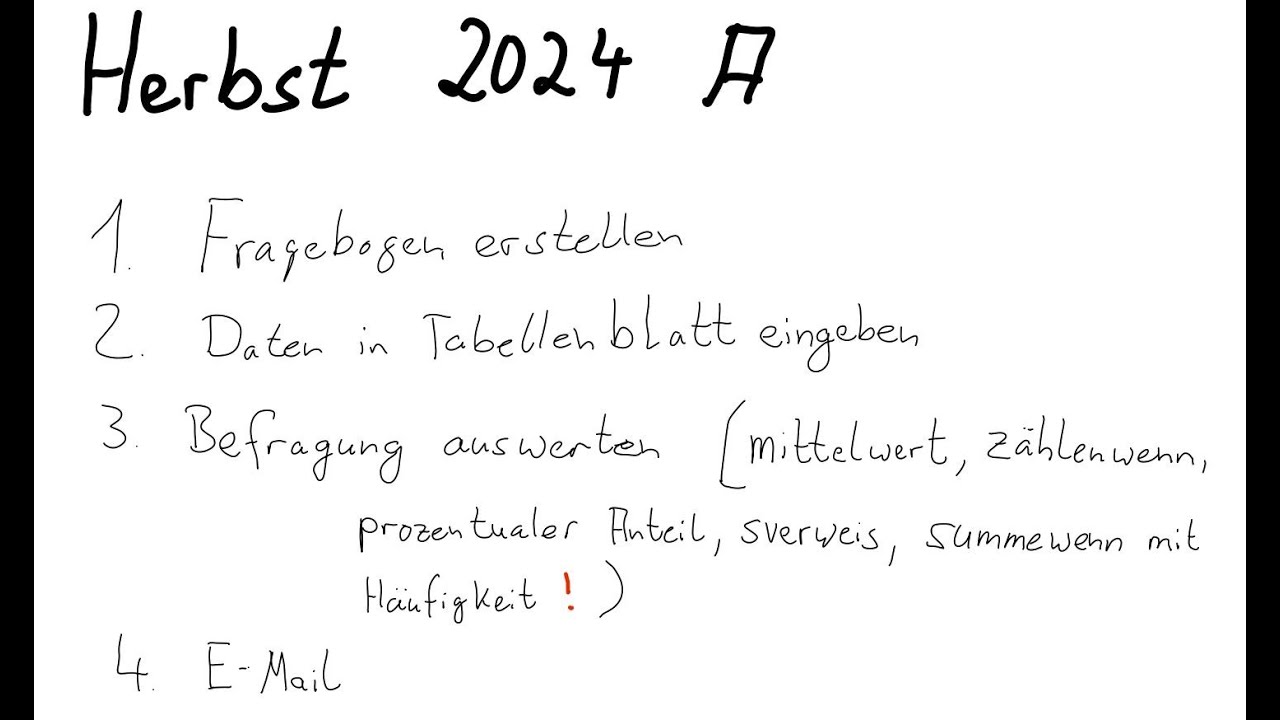 Herbst 2024 A
1. Fragebogen erstellen
2. Daten in Tabellenblatt eingeben
3. Befragung auswerten (mittelwert, zählenwenn,
prozentualer Anteil, sverweis, summewenn mit
Häufigkeit !)
4. E-Mail